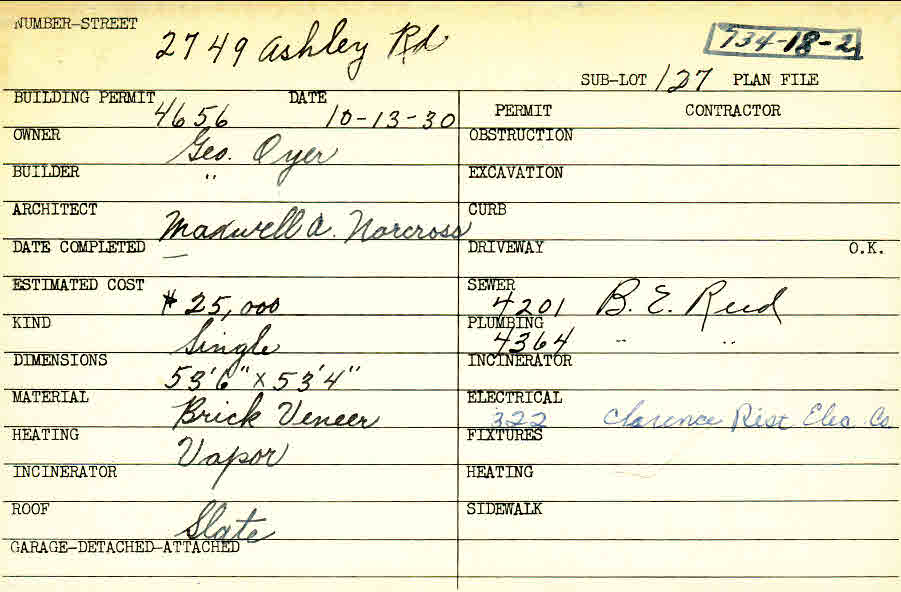 NUMBER-STREET 2749 Ashley Rd
734-18-2
SUB-LOT 127 PLAN FILE
BUILDING PERMIT 4656 DATE 10-13-30
PERMIT CONTRACTOR
OWNER Geo. Oyer
OBSTRUCTION
BUILDER "
EXCAVATION
ARCHITECT Maxwell A. Norcross
CURB
DATE COMPLETED —
DRIVEWAY O.K.
ESTIMATED COST $25,000
SEWER 4201 B. E. Reed
KIND Single
PLUMBING 4364 " "
DIMENSIONS 53'6" x 53'4"
INCINERATOR
MATERIAL Brick Veneer
ELECTRICAL 322 Clarence Rist Elec Co
HEATING Vapor
FIXTURES
INCINERATOR
HEATING
ROOF Slate
SIDEWALK
GARAGE-DETACHED-ATTACHED